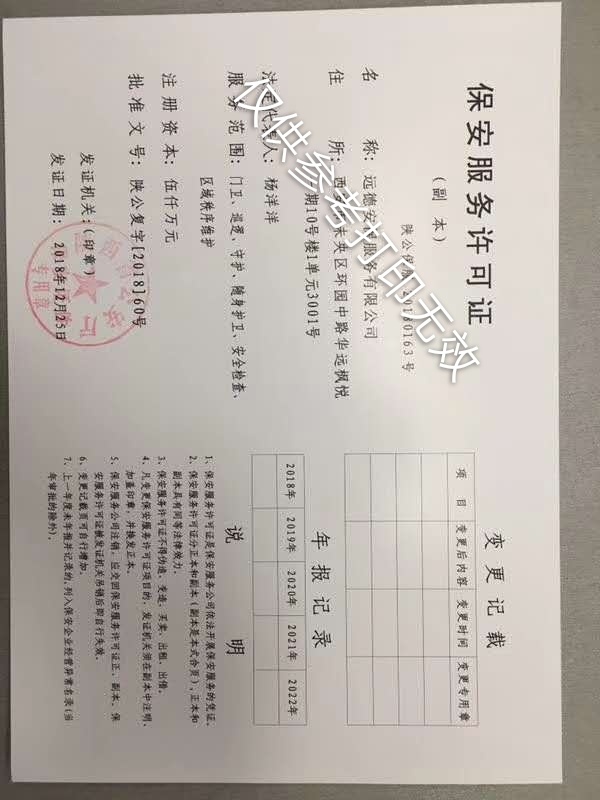 保安服务许可证
(副 本)
陕公保服20180163号
名 称：远德安保服务有限公司
住 所：西安市未央区环园中路华远枫悦
期10号楼1单元3001号
法定代表人：杨洋洋
服务范围：门卫、巡逻、守护、随身护卫、安全检查、
区域秩序维护
注册资本：伍仟万元
批准文号：陕公复字[2018]60号
发证机关：(印章)
发证日期：2018年12月25日
专用章
变更记载
项 目 变更后内容 变更时间 变更专用章
年报记录
2018年 2019年 2020年 2021年 2022年
说 明
1、保安服务许可证是保安服务公司依法开展保安服务的凭证。
2、保安服务许可证分正本和副本(副本是本式合页)，正本和
副本具有同等法律效力。
3、保安服务许可证不得伪造、变造、买卖、出租、出借。
4、凡变更保安服务许可证项目的，发证机关须在副本中注明、
加盖印章，并换发正本。
5、保安服务公司注销，应交回保安服务许可证正、副本。保
安服务许可证被发证机关吊销后即自行失效。
6、变更记载页可自行增加。
7、上一年度未年报并记录的，列入保安企业经营异常名录(当
年审批的除外)。
仅供参考打印无效